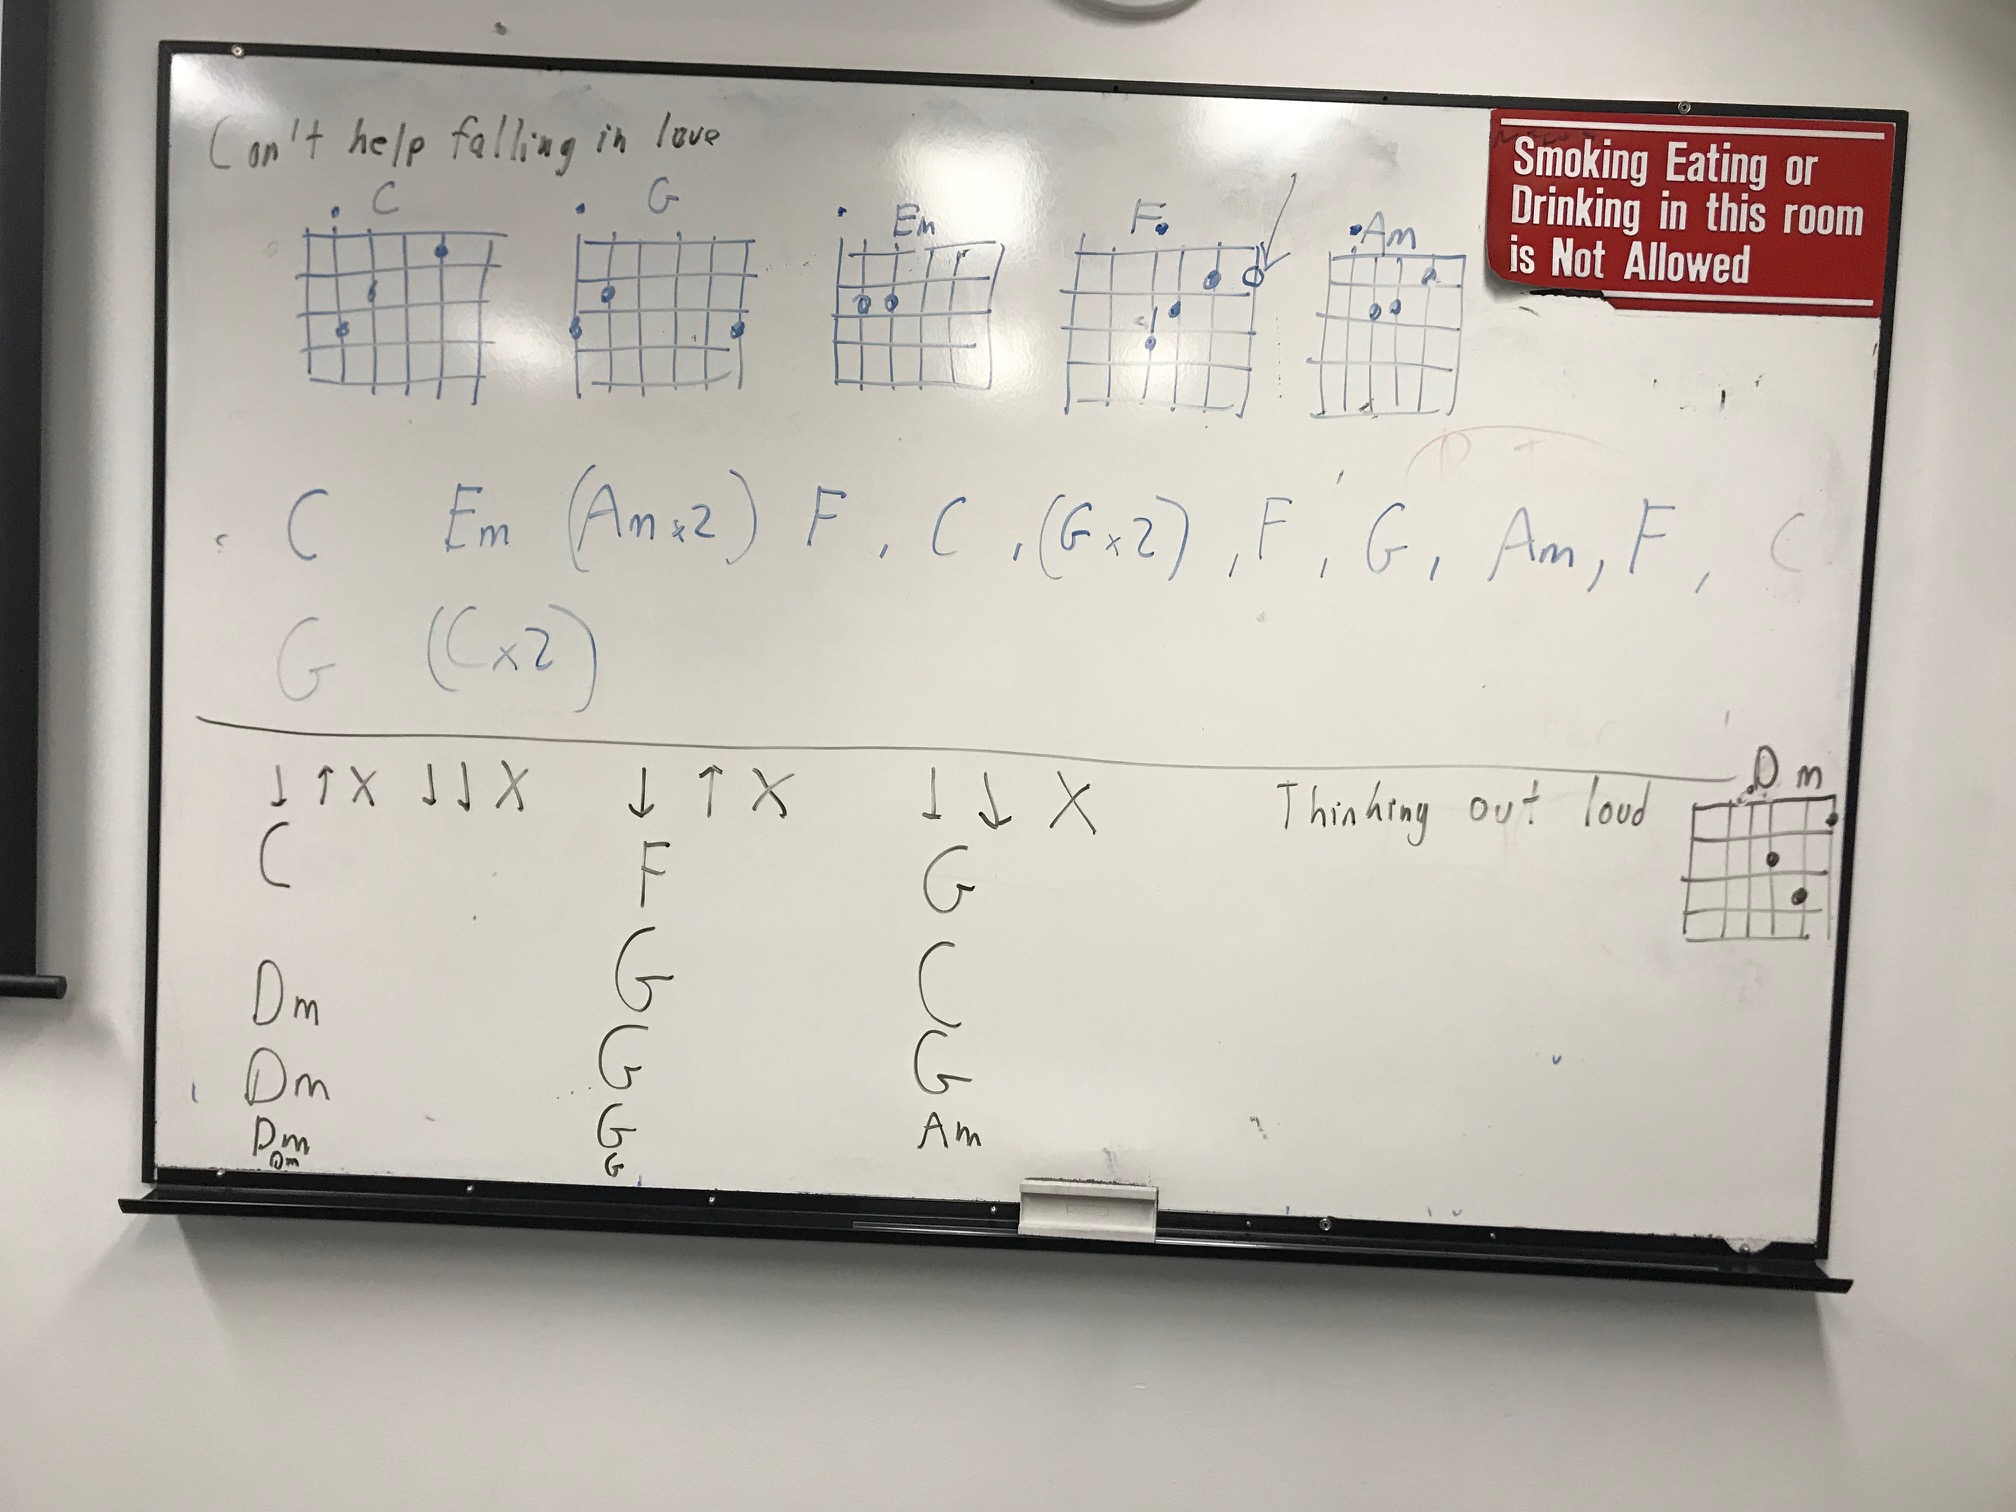 Can't help falling in love
C G Em F Am
Smoking Eating or
Drinking in this room
is Not Allowed
C Em (Am x2) F, C, (G x2), F, G, Am, F, C
G (C x2)
↓ ↑ X ↓ ↓ X ↓ ↑ X ↓ ↓ X Thinking out loud Dm
C F G
Dm G C
Dm G G
Dm G Am
Dm G